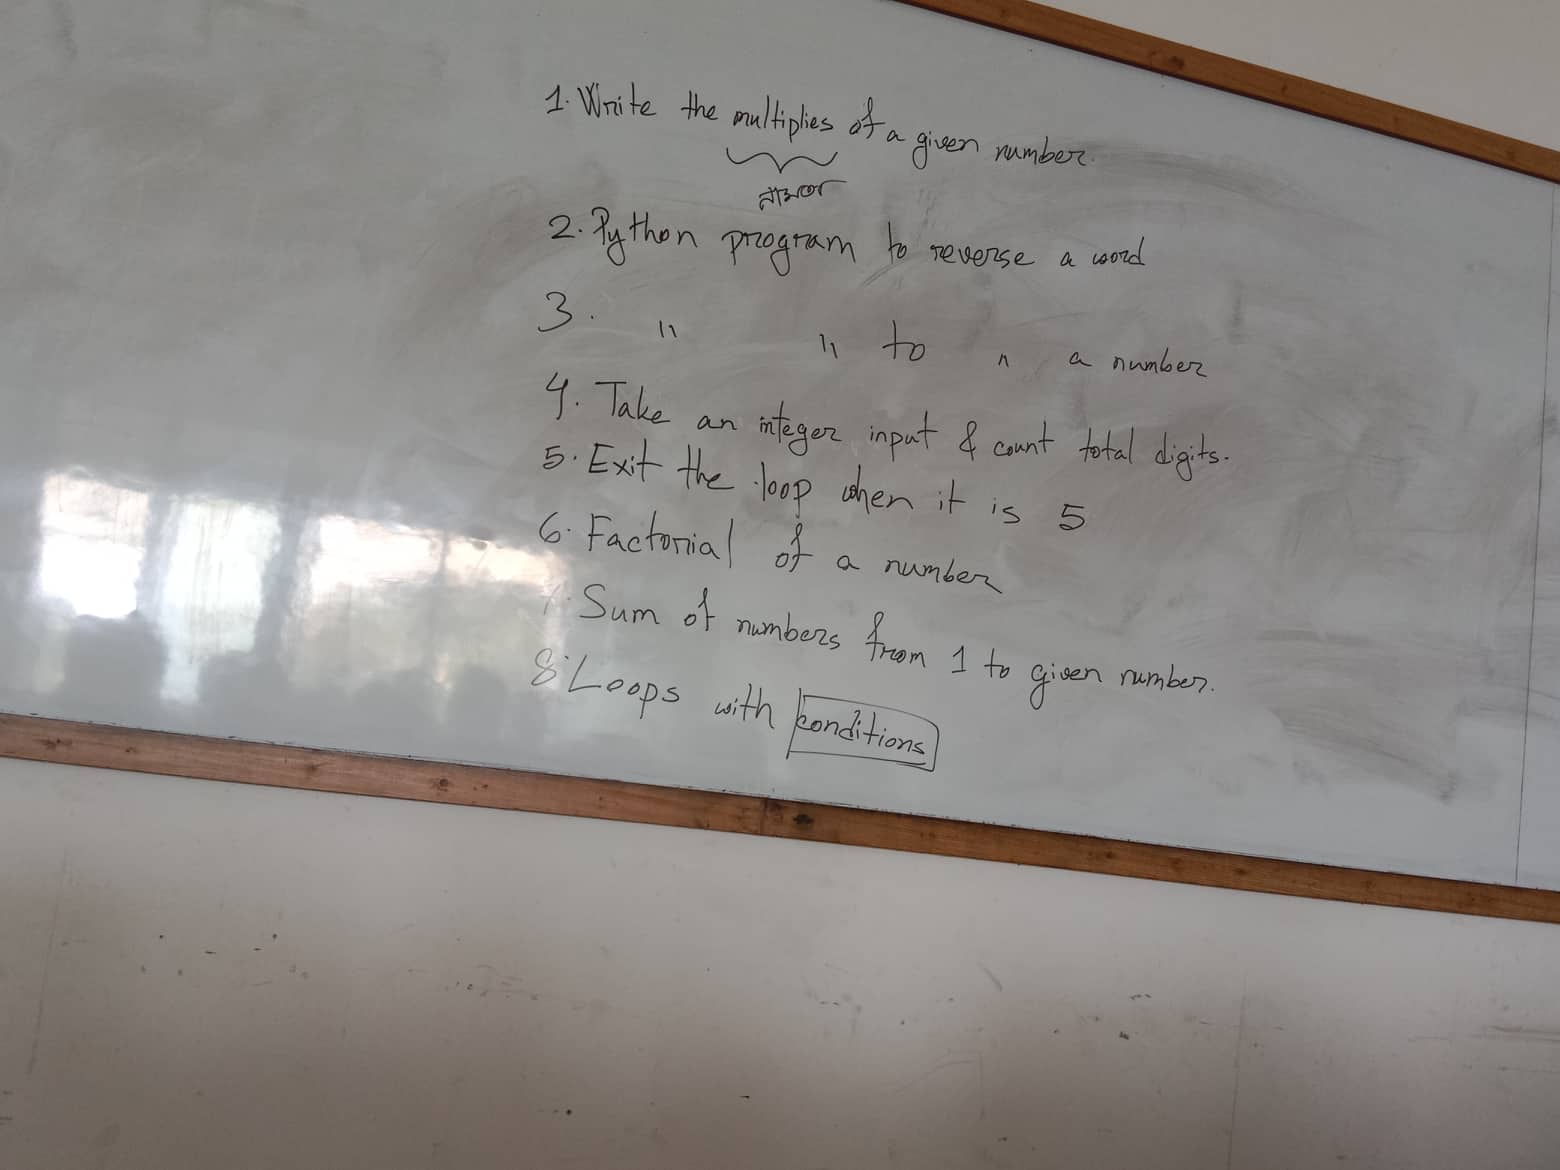 1. Write the multiplies of a given number.
2. Python program to reverse a word
3. " " to " a number
4. Take an integer input & count total digits.
5. Exit the loop when it is 5
6. Factorial of a number
7. Sum of numbers from 1 to given number.
8. Loops with conditions